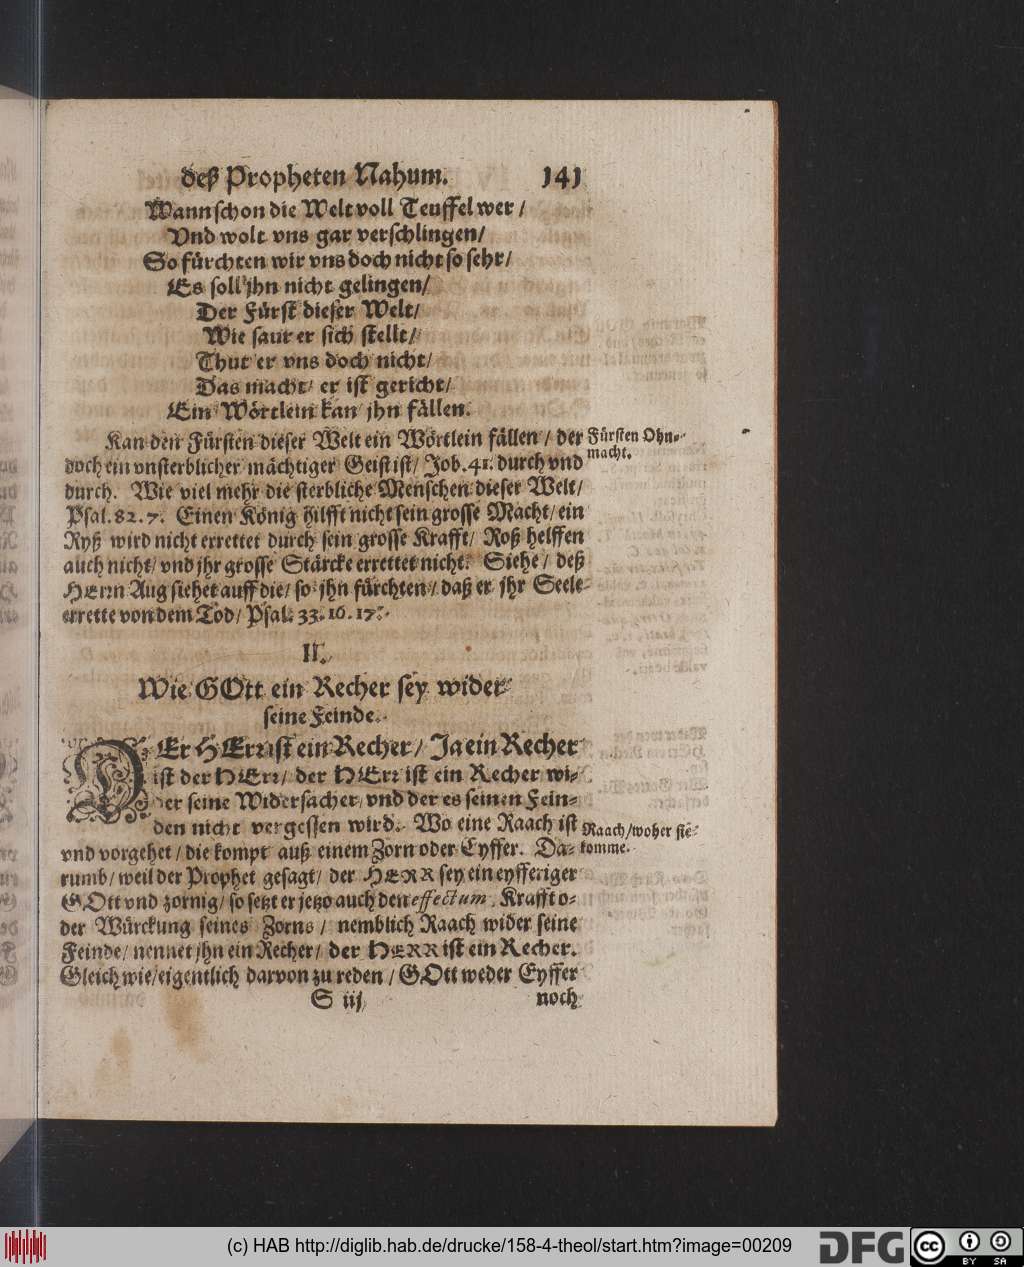 deß Propheten Nahum. 141
Wann schon die Welt voll Teuffel wer /
Vnd wolt vns gar verschlingen /
So fürchten wir vns doch nicht so sehr /
Es soll jhn nicht gelingen /
Der Fürst dieser Welt /
Wie saur er sich stellt /
Thut er vns doch nicht /
Das macht / er ist gericht /
Ein Wörtlein kan jhn fällen.
Kan den Fürsten dieser Welt ein Wörtlein fällen / der
Fürsten Ohn-
macht.
doch ein vnsterblicher mächtiger Geist ist / Job. 41. durch vnd
durch. Wie viel mehr die sterbliche Menschen dieser Welt /
Psal. 82. 7. Einen König hilfft nicht sein grosse Macht / ein
Ryß wird nicht errettet durch sein grosse Krafft / Roß helffen
auch nicht / vnd jhr grosse Stärcke errettet nicht. Siehe / deß
HErrn Aug siehet auff die / so jhn fürchten / daß er jhr Seele
errette von dem Tod / Psal. 33. 16. 17.
II.
Wie GOtt ein Recher sey wider
seine Feinde.
DEr HErr ist ein Recher / Ja ein Recher
ist der HErr / der HErr ist ein Recher wi-
der seine Widersacher / vnd der es seinen Fein-
den nicht vergessen wird. Wo eine Raach ist
Raach / woher sie
komme.
vnd vorgehet / die kompt auß einem Zorn oder Eyffer. Da-
rumb / weil der Prophet gesagt / der HERR sey ein eyfferiger
GOtt vnd zornig / so setzt er jetzo auch den effectum, Krafft o-
der Würckung seines Zorns / nemblich Raach wider seine
Feinde / nennet jhn ein Recher / der HERR ist ein Recher.
Gleich wie / eigentlich darvon zu reden / GOtt weder Eyffer
S iij noch
(c) HAB http://diglib.hab.de/drucke/158-4-theol/start.htm?image=00209
DFG
cc
BY SA